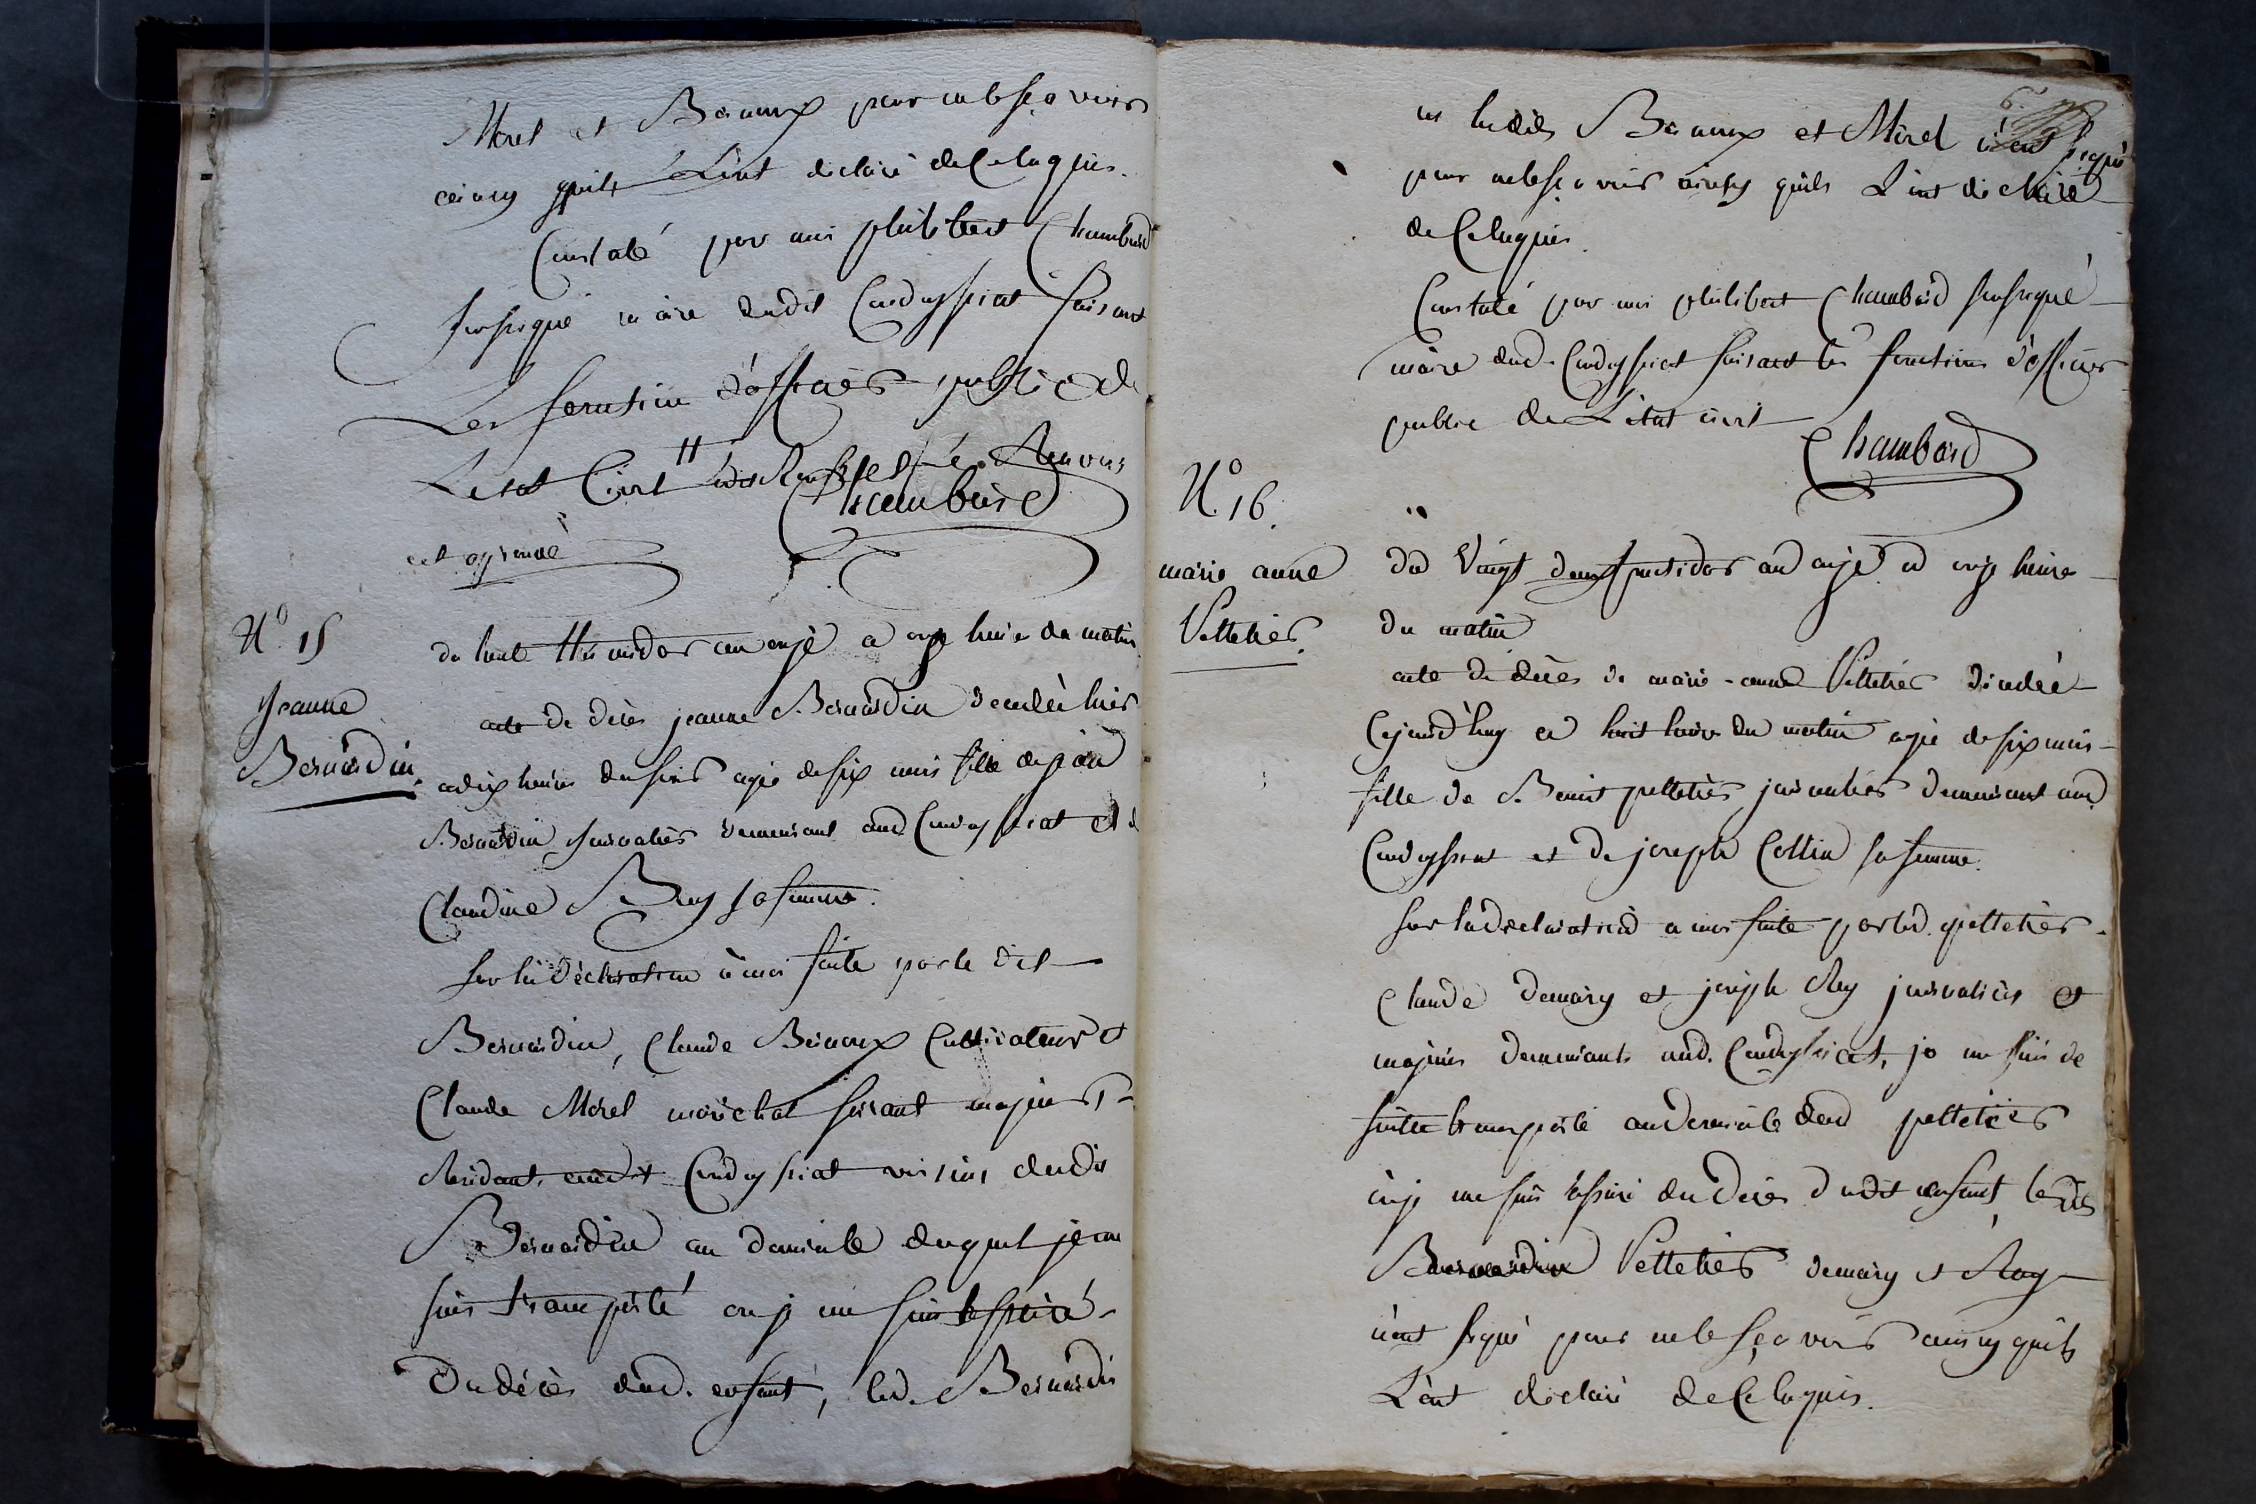 Morel et Bernoux pour ne le sçavoir
ainsy qu'ils L'ont declaré de Ce laquis.
Constaté par moi philibert Chambard
soussigné maire dudit Condeyssiat faisant
Les fonction d'officier public de
Letat Civil
Chambard
est aprouvé
N.º 15
Jeanne
Bernardin.
du huit thermidor an onze a onze heure du matin
acte de décès jeanne Bernardin décedée hier
a dix heures du soir agée de six mois fille de
Bernardin journalier demeurant aud Condeyssiat et de
Claudine Rey sa femme.
sur la déclaration à moi faite par le dit
Bernardin, Claude Bernoux Cultivateur et
Claude Morel maréchal ferrant majeurs
Résidant audit Condeyssiat voisins dudit
Bernardin au domicile duquel je me
suis transporté ou je me suis assuré
Du décès dud. enfant, led. Bernardin
6.
et lesdits Bernoux et Morel n'ont signé
pour ne le sçavoir ainsy quils L'ont déclaré
de Ce laquis.
Constaté par moi philibert Chambard soussigné
maire dud. Condeyssiat faisant les fonctions d'officier
public de L'état civil
Chambard
N.º 16.
marie anne
Pelletier.
du Vingt deux fructidor an onze a onze heure
du matin
acte de décès de marie-anne Pelletier décedée
Cejourd'huy a huit heure du matin agée de six mois
fille de Benoit pelletier journalier demeurant aud
Condeyssiat et de joseph Collin sa femme.
sur la declaration a moi faite par led. pelletier.
Claude demary et joseph Rey journaliers et
majeurs demeurants aud. Condeyssiat, je me suis de
suitte transporté au domicile dud pelletier
où je me suis assuré du décès dudit enfant, lesdits
Pelletier demary et Rey
n'ont signé pour ne le sçavoir ainsy quils
L'ont déclaré de Ce laquis.